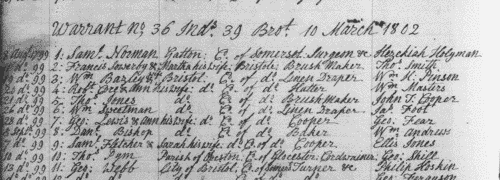 Warrant No. 36 Inds. 39 Brot. 10 March 1802
99 1: Saml. Norman Yatton Co. of Somerset Surgeon & Hezekiah Holyman
do. 99 2: Francis & Martha his wife Bristol Brush Maker Thos. Smith
do. 99 3: Wm. Bazley do. Bristol Co. of do. Linen Draper Wm. K. Pinson
do. 99 4: Robt. & Ann his wife do. Co. of do. Hatter Wm. Masters
do. 99 5: Thos. Jones do. Co. of do. Brush Maker John T. Cooper
do. 99 6: Wm. Sweetman do. Co. of do. Linen Draper Jas. Foot
do. 99 7: Geo: Lewis & Ann his wife do. Co. of do. Cooper Geo: Fear
Sept. 99 8: Danl. Bishop do. Co. of do. Baker Wm. Andrews
7 do. 99 9: Saml. Fletcher & Sarah his wife do. Co. of do. Cooper Ellis Jones
10 do. 99 10: Thos. Pym Parish of Co. of Glocester Cordwainer Geo: Shill
13 do. 99 11: Geo: Webb City of Bristol Co. of Turner &c. Philip Hoskin
do. Geo: Ferguson